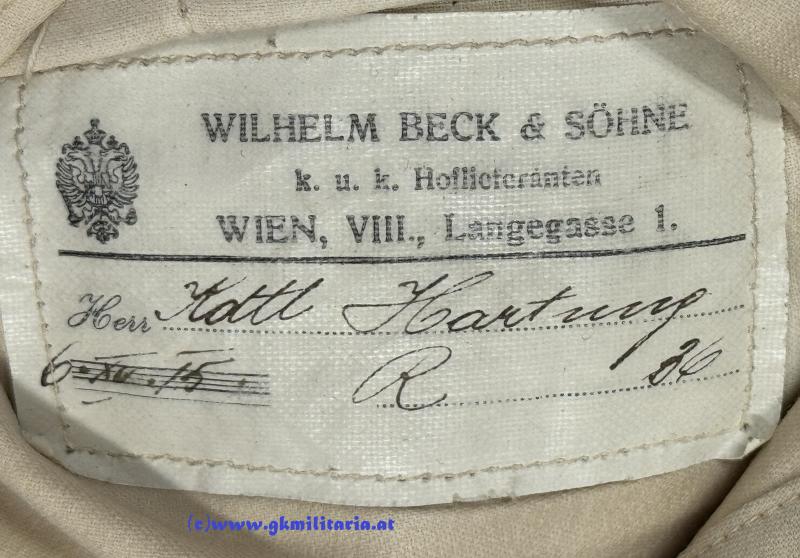 WILHELM BECK & SÖHNE
k. u. k. Hoflieferanten
WIEN, VIII., Langegasse 1.
Herr Kdtl Hartung
6. XII. 15.
R 36
(c)www.gkmilitaria.at